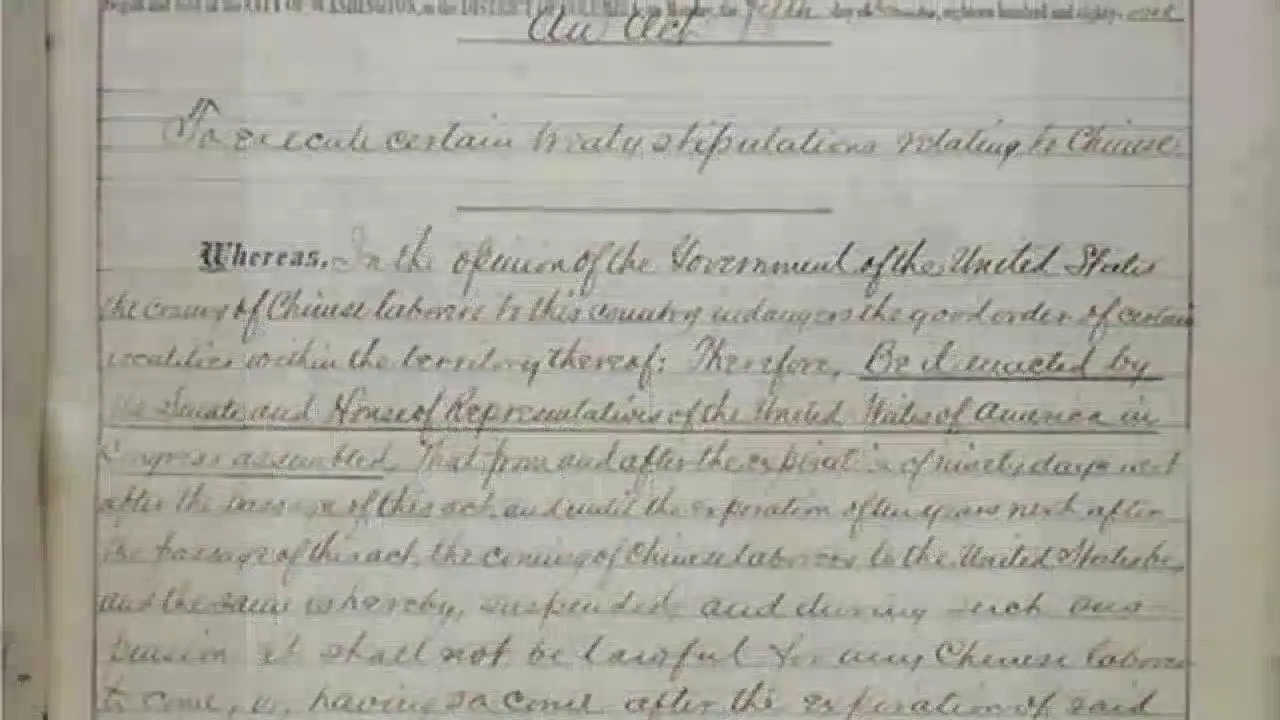 Begun and held at the CITY OF WASHINGTON, in the DISTRICT OF COLUMBIA, on Monday, the fifth day of December, eighteen hundred and eighty-one
An Act
To execute certain treaty stipulations relating to Chinese.
Whereas, In the opinion of the Government of the United States
the coming of Chinese laborers to this country endangers the good order of certain
localities within the territory thereof: Therefore, Be it enacted by
the Senate and House of Representatives of the United States of America in
Congress assembled, That from and after the expiration of ninety days next
after the passage of this act, and until the expiration of ten years next after
the passage of this act, the coming of Chinese laborers to the United States be,
and the same is hereby, suspended; and during such sus-
pension it shall not be lawful for any Chinese laborer
to come, or, having so come after the expiration of said